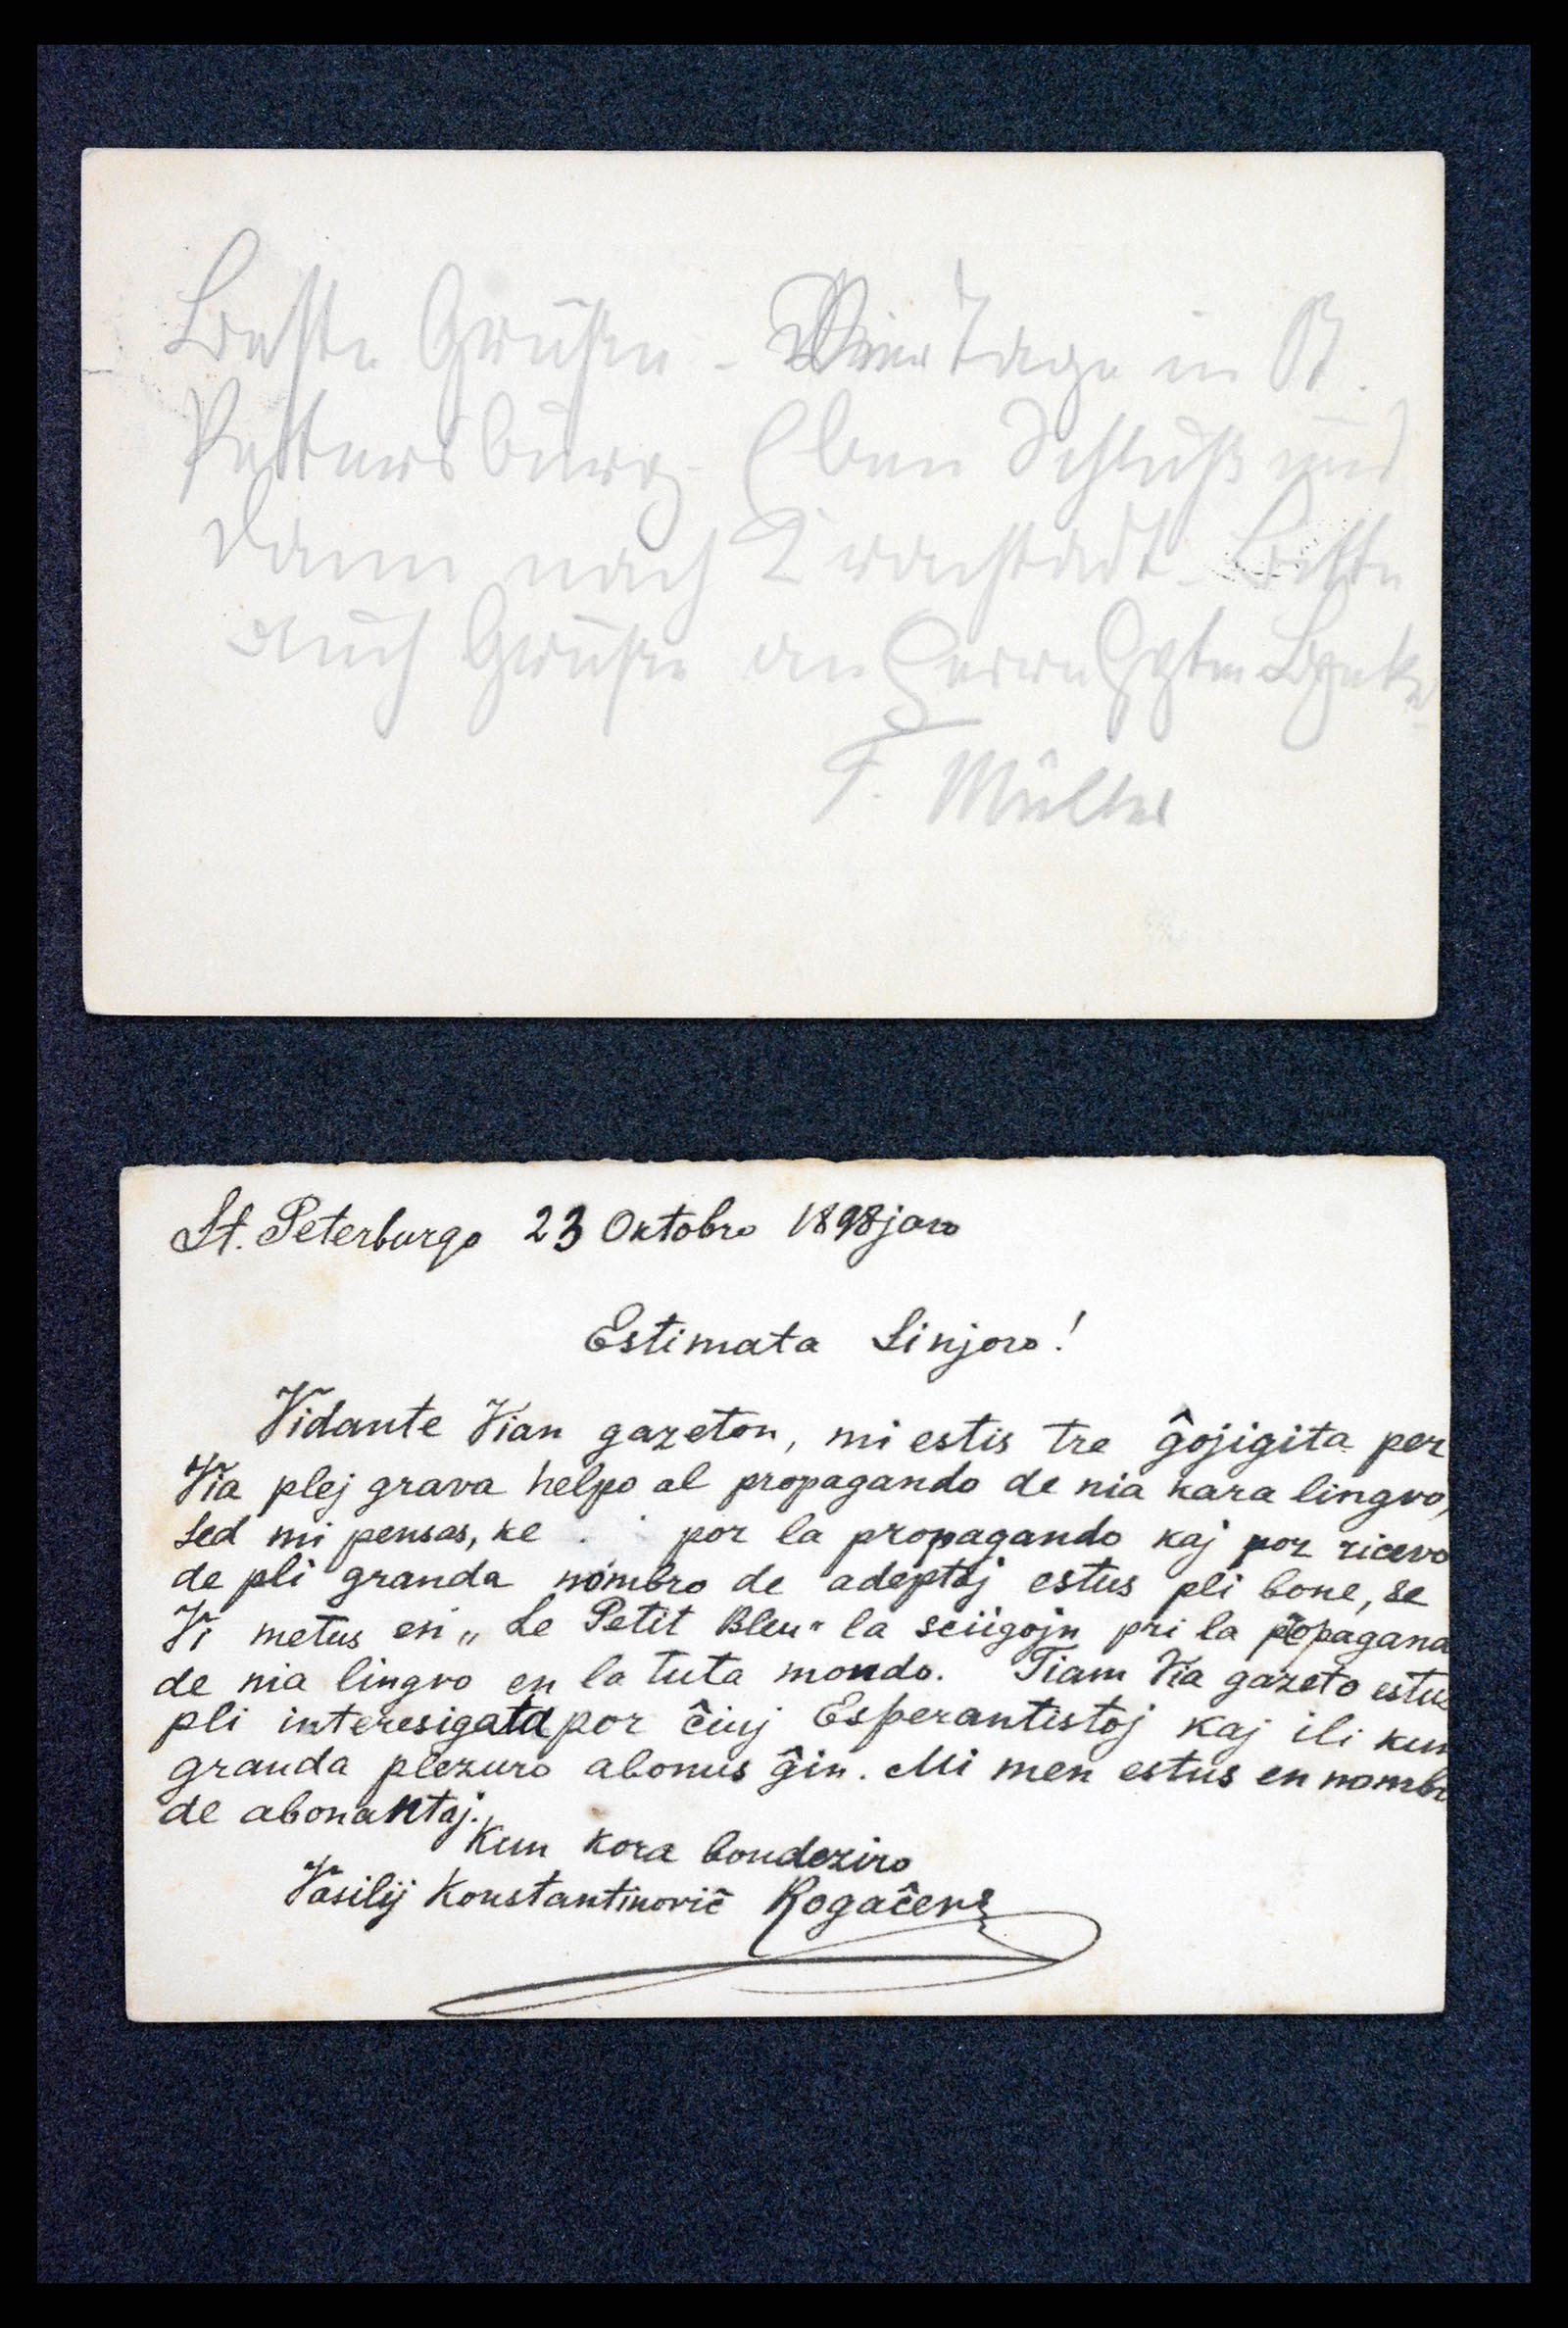 Beste Grüße - Vier Tage in St.
Petersburg. Eben Schluß und
dann nach Kronstadt. Bitte
auch Grüße an Herrn Hptm
F. Müller
St. Peterburgo 23 Oktobro 1898 jaro
Estimata Sinjoro!
Vidante Vian gazeton, mi estis tre ĝojigita per
Via plej grava helpo al propagando de nia kara lingvo,
sed mi pensas, ke por la propagando kaj por ricevo
de pli granda nombro de adeptoj estus pli bone, se
Vi metus en „Le Petit Bleu“ la sciigojn pri la propagand
de nia lingvo en la tuta mondo. Tiam Via gazeto estus
pli interesigata por ĉiuj Esperantistoj kaj ili kun
granda plezuro abonus ĝin. Mi men estus en nombr
de abonantoj.
Kun kora bondeziro
Vasilij Konstantinoviĉ Rogaĉevs